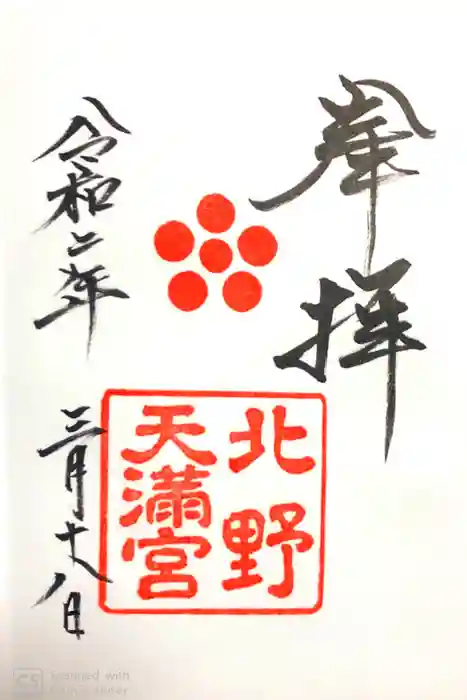 奉拝
北野
天満宮
令和二年
三月十八日
CS
Scanned with
CamScanner